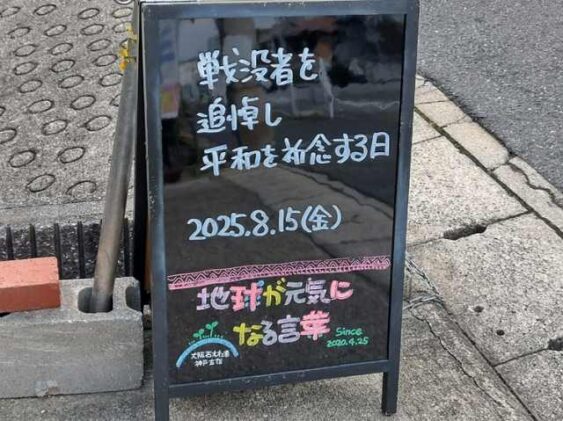 戦没者を
追悼し
平和を祈念する日
2025.8.15(金)
地球が元気に
なる言葉
Since
2020.4.25
神戸